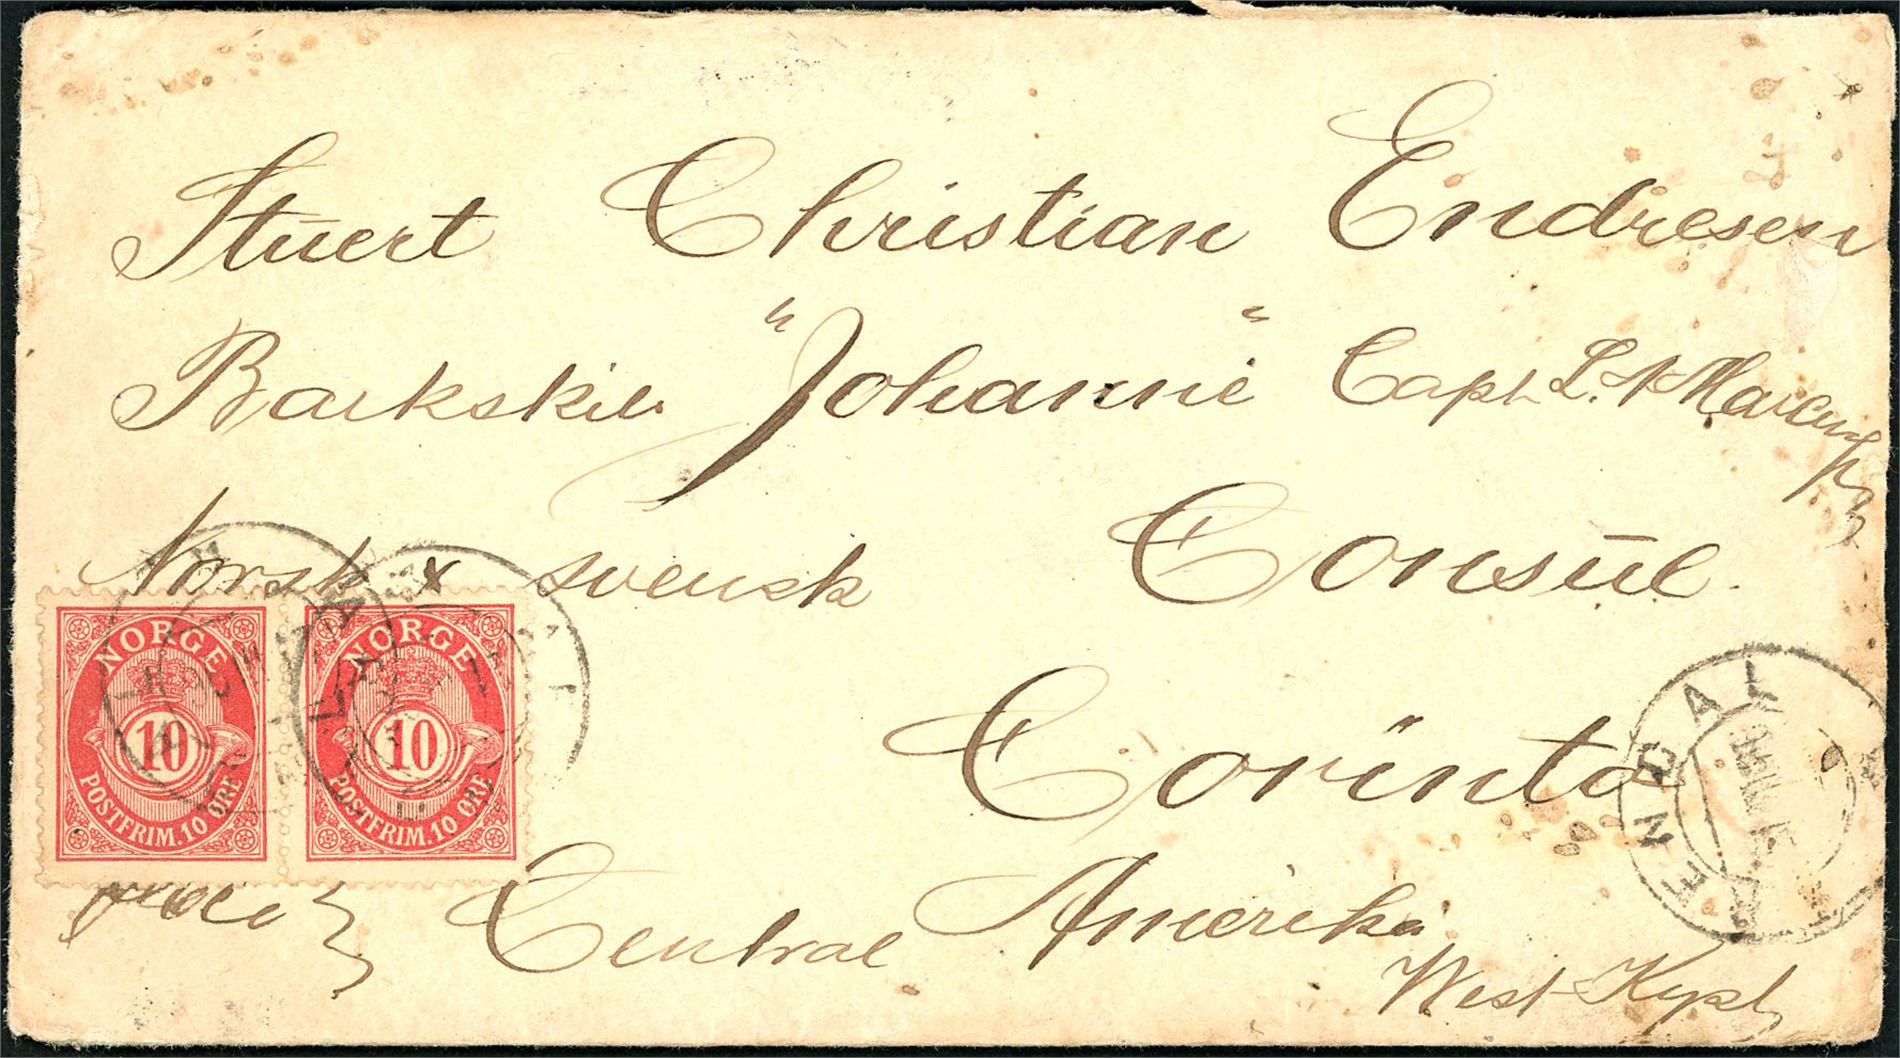 Stuert Christian Endresen
Barkskib "Johanne" Capt. L. A Marcussen
Norsk x svensk Consul.
Corinto
Central Amerika
West-Kyst
NORGE
10
POSTFRIM. 10 ØRE
NORGE
10
POSTFRIM. 10 ØRE
ARENDAL